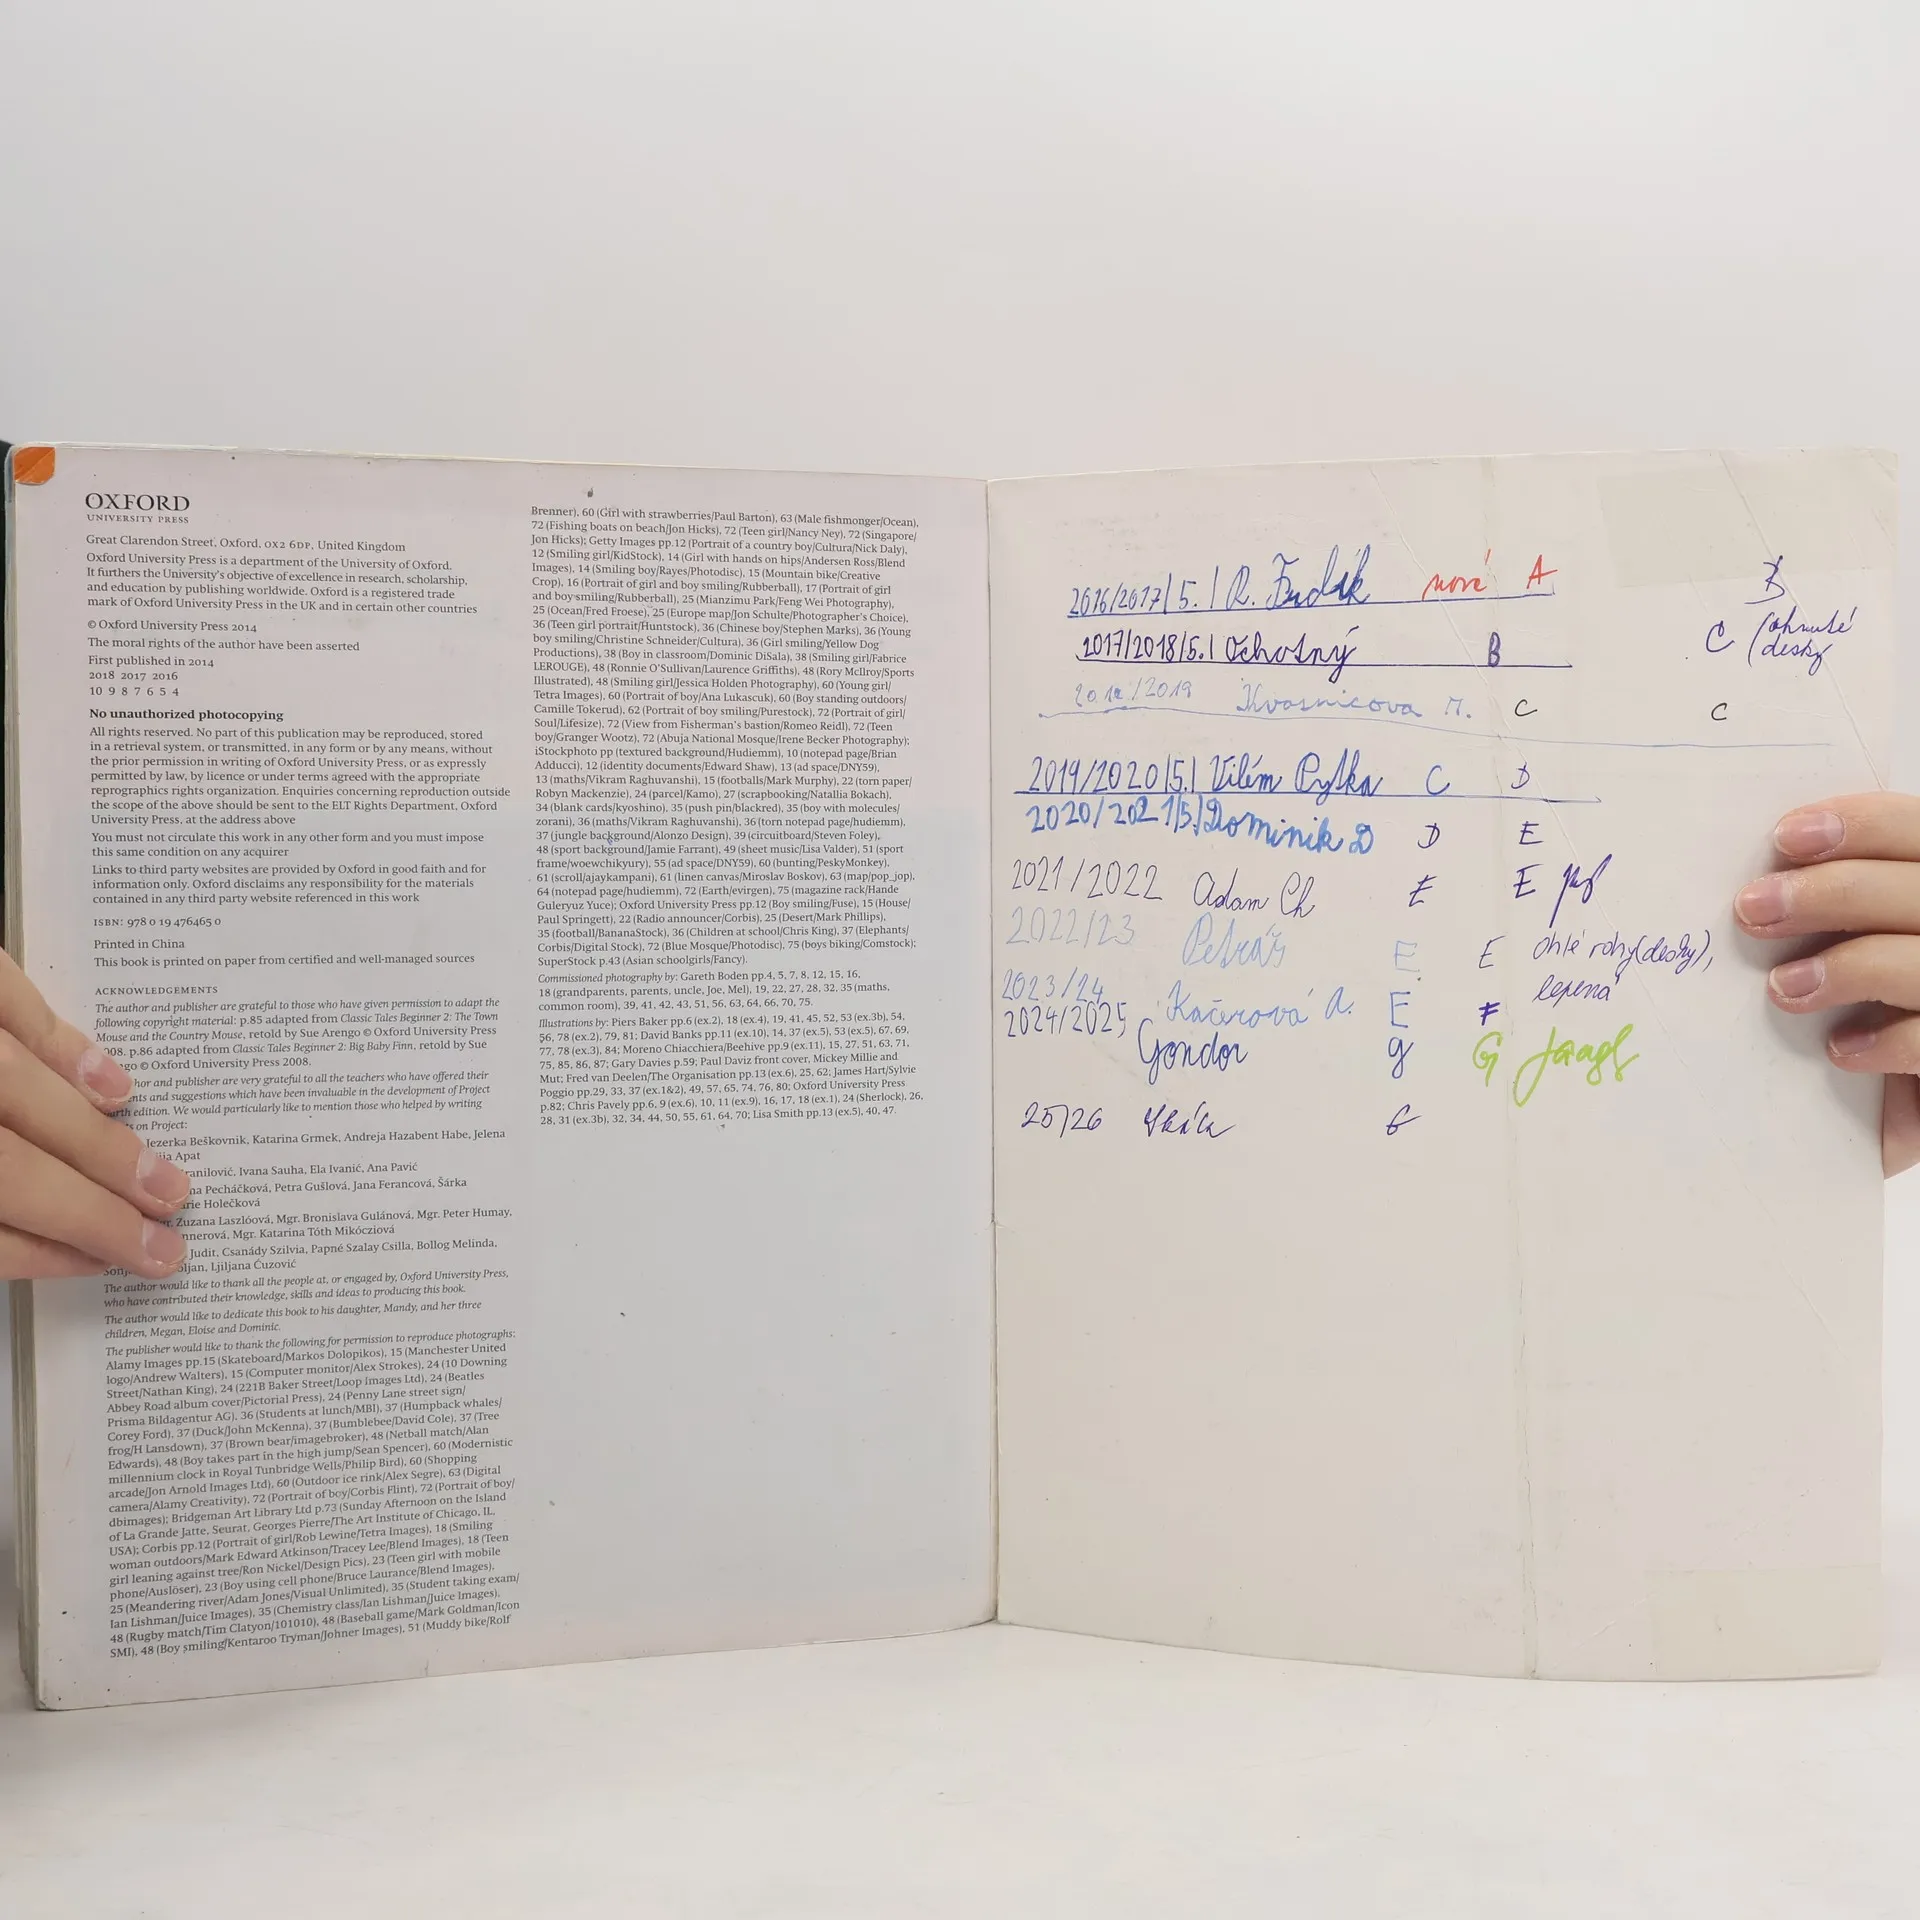 OXFORD
UNIVERSITY PRESS
Great Clarendon Street, Oxford, OX2 6DP, United Kingdom
Oxford University Press is a department of the University of Oxford.
It furthers the University's objective of excellence in research, scholarship,
and education by publishing worldwide. Oxford is a registered trade
mark of Oxford University Press in the UK and in certain other countries
© Oxford University Press 2014
The moral rights of the author have been asserted
First published in 2014
2018 2017 2016
10 9 8 7 6 5 4
No unauthorized photocopying
All rights reserved. No part of this publication may be reproduced, stored
in a retrieval system, or transmitted, in any form or by any means, without
the prior permission in writing of Oxford University Press, or as expressly
permitted by law, by licence or under terms agreed with the appropriate
reprographics rights organization. Enquiries concerning reproduction outside
the scope of the above should be sent to the ELT Rights Department, Oxford
University Press, at the address above
You must not circulate this work in any other form and you must impose
this same condition on any acquirer
Links to third party websites are provided by Oxford in good faith and for
information only. Oxford disclaims any responsibility for the materials
contained in any third party website referenced in this work
ISBN: 978 0 19 476465 0
Printed in China
This book is printed on paper from certified and well-managed sources
ACKNOWLEDGEMENTS
The author and publisher are grateful to those who have given permission to adapt the
following copyright material: p.85 adapted from Classic Tales Beginner 2: The Town
Mouse and the Country Mouse, retold by Sue Arengo © Oxford University Press
2008. p.86 adapted from Classic Tales Beginner 2: Big Baby Finn, retold by Sue
© Oxford University Press 2008.
and publisher are very grateful to all the teachers who have offered their
and suggestions which have been invaluable in the development of Project
edition. We would particularly like to mention those who helped by writing
on Project:
Jezerka Beškovnik, Katarina Grmek, Andreja Hazabent Habe, Jelena
Apat
Ivana Sauha, Ela Ivanić, Ana Pavić
Pecháčková, Petra Gušlová, Jana Ferancová, Šárka
Holečková
Zuzana Laszlóová, Mgr. Bronislava Gulánová, Mgr. Peter Humay,
Mgr. Katarina Tóth Mikócziová
Judit, Csanády Szilvia, Papné Szalay Csilla, Bollog Melinda,
Ljiljana Ćuzović
The author would like to thank all the people at, or engaged by, Oxford University Press,
who have contributed their knowledge, skills and ideas to producing this book.
The author would like to dedicate this book to his daughter, Mandy, and her three
children, Megan, Eloise and Dominic.
The publisher would like to thank the following for permission to reproduce photographs:
Alamy Images pp.15 (Skateboard/Markos Dolopikos), 15 (Manchester United
logo/Andrew Walters), 15 (Computer monitor/Alex Strokes), 24 (10 Downing
Street/Nathan King), 24 (221B Baker Street/Loop Images Ltd), 24 (Beatles
Abbey Road album cover/Pictorial Press), 24 (Penny Lane street sign/
Prisma Bildagentur AG), 36 (Students at lunch/MBI), 37 (Humpback whales/
Corey Ford), 37 (Duck/John McKenna), 37 (Bumblebee/David Cole), 37 (Tree
frog/H Lansdown), 37 (Brown bear/imagebroker), 48 (Netball match/Alan
Edwards), 48 (Boy takes part in the high jump/Sean Spencer), 60 (Modernistic
millennium clock in Royal Tunbridge Wells/Philip Bird), 60 (Shopping
arcade/Jon Arnold Images Ltd), 60 (Outdoor ice rink/Alex Segre), 63 (Digital
camera/Alamy Creativity), 72 (Portrait of boy/Corbis Flint), 72 (Portrait of boy/
dbimages); Bridgeman Art Library Ltd p.73 (Sunday Afternoon on the Island
of La Grande Jatte, Seurat, Georges Pierre/The Art Institute of Chicago, IL,
USA); Corbis pp.12 (Portrait of girl/Rob Lewine/Tetra Images), 18 (Smiling
woman outdoors/Mark Edward Atkinson/Tracey Lee/Blend Images), 18 (Teen
girl leaning against tree/Ron Nickel/Design Pics), 23 (Teen girl with mobile
phone/Auslöser), 23 (Boy using cell phone/Bruce Laurance/Blend Images),
25 (Meandering river/Adam Jones/Visual Unlimited), 35 (Student taking exam/
Ian Lishman/Juice Images), 35 (Chemistry class/Ian Lishman/Juice Images),
48 (Rugby match/Tim Clatyon/101010), 48 (Baseball game/Mark Goldman/Icon
SMI), 48 (Boy smiling/Kentaroo Tryman/Johner Images), 51 (Muddy bike/Rolf
Brenner), 60 (Girl with strawberries/Paul Barton), 63 (Male fishmonger/Ocean),
72 (Fishing boats on beach/Jon Hicks), 72 (Teen girl/Nancy Ney), 72 (Singapore/
Jon Hicks); Getty Images pp.12 (Portrait of a country boy/Cultura/Nick Daly),
12 (Smiling girl/KidStock), 14 (Girl with hands on hips/Andersen Ross/Blend
Images), 14 (Smiling boy/Rayes/Photodisc), 15 (Mountain bike/Creative
Crop), 16 (Portrait of girl and boy smiling/Rubberball), 17 (Portrait of girl
and boy smiling/Rubberball), 25 (Mianzimu Park/Feng Wei Photography),
25 (Ocean/Fred Froese), 25 (Europe map/Jon Schulte/Photographer's Choice),
36 (Teen girl portrait/Huntstock), 36 (Chinese boy/Stephen Marks), 36 (Young
boy smiling/Christine Schneider/Cultura), 36 (Girl smiling/Yellow Dog
Productions), 38 (Boy in classroom/Dominic DiSala), 38 (Smiling girl/Fabrice
LEROUGE), 48 (Ronnie O'Sullivan/Laurence Griffiths), 48 (Rory McIlroy/Sports
Illustrated), 48 (Smiling girl/Jessica Holden Photography), 60 (Young girl/
Tetra Images), 60 (Portrait of boy/Ana Lukascuk), 60 (Boy standing outdoors/
Camille Tokerud), 62 (Portrait of boy smiling/Purestock), 72 (Portrait of girl/
Soul/Lifesize), 72 (View from Fisherman's bastion/Romeo Reidl), 72 (Teen
boy/Granger Wootz), 72 (Abuja National Mosque/Irene Becker Photography);
iStockphoto pp (textured background/Hudiemm), 10 (notepad page/Brian
Adducci), 12 (identity documents/Edward Shaw), 13 (ad space/DNY59),
13 (maths/Vikram Raghuvanshi), 15 (footballs/Mark Murphy), 22 (torn paper/
Robyn Mackenzie), 24 (parcel/Kamo), 27 (scrapbooking/Natallia Bokach),
34 (blank cards/kyoshino), 35 (push pin/blackred), 35 (boy with molecules/
zorani), 36 (maths/Vikram Raghuvanshi), 36 (torn notepad page/hudiemm),
37 (jungle background/Alonzo Design), 39 (circuitboard/Steven Foley),
48 (sport background/Jamie Farrant), 49 (sheet music/Lisa Valder), 51 (sport
frame/woewchikyury), 55 (ad space/DNY59), 60 (bunting/PeskyMonkey),
61 (scroll/ajaykampani), 61 (linen canvas/Miroslav Boskov), 63 (map/pop_jop),
64 (notepad page/hudiemm), 72 (Earth/evirgen), 75 (magazine rack/Hande
Guleryuz Yuce); Oxford University Press pp.12 (Boy smiling/Fuse), 15 (House/
Paul Springett), 22 (Radio announcer/Corbis), 25 (Desert/Mark Phillips),
35 (football/BananaStock), 36 (Children at school/Chris King), 37 (Elephants/
Corbis/Digital Stock), 72 (Blue Mosque/Photodisc), 75 (boys biking/Comstock);
SuperStock p.43 (Asian schoolgirls/Fancy).
Commissioned photography by: Gareth Boden pp.4, 5, 7, 8, 12, 15, 16,
18 (grandparents, parents, uncle, Joe, Mel), 19, 22, 27, 28, 32, 35 (maths,
common room), 39, 41, 42, 43, 51, 56, 63, 64, 66, 70, 75.
Illustrations by: Piers Baker pp.6 (ex.2), 18 (ex.4), 19, 41, 45, 52, 53 (ex.3b), 54,
56, 78 (ex.2), 79, 81; David Banks pp.11 (ex.10), 14, 37 (ex.5), 53 (ex.5), 67, 69,
77, 78 (ex.3), 84; Moreno Chiacchiera/Beehive pp.9 (ex.11), 15, 27, 51, 63, 71,
75, 85, 86, 87; Gary Davies p.59; Paul Daviz front cover, Mickey Millie and
Mut; Fred van Deelen/The Organisation pp.13 (ex.6), 25, 62; James Hart/Sylvie
Poggio pp.29, 33, 37 (ex.1&2), 49, 57, 65, 74, 76, 80; Oxford University Press
p.82; Chris Pavely pp.6, 9 (ex.6), 10, 11 (ex.9), 16, 17, 18 (ex.1), 24 (Sherlock), 26,
28, 31 (ex.3b), 32, 34, 44, 50, 55, 61, 64, 70; Lisa Smith pp.13 (ex.5), 40, 47.
2016/2017/5. / R. nové A
2017/2018/5. / Ochotný B C (ohnuté
desky
2018/2019 Kvasnicova M. C C
2019/2020/5. / Vilém Pytka C D
2020/2021/5./Dominik D D E
2021/2022 Adam Ch E E
2022/23 Petráš E E ohlé rohy (desky),
lepená
2023/24 Kačerová A. E F
2024/2025 Gondor g G
25/26 G